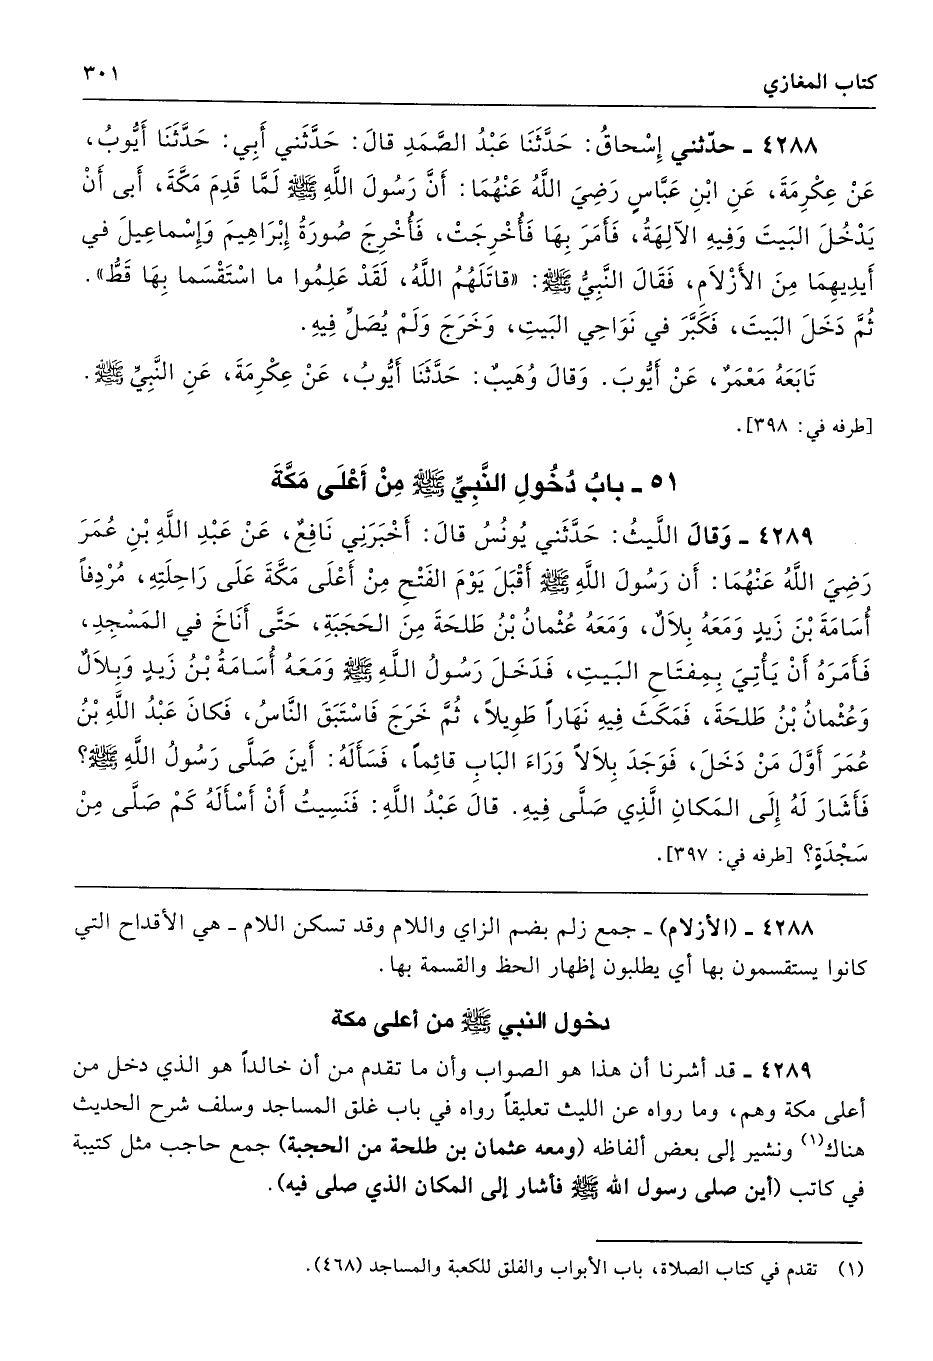 كتاب المغازي ٣٠١
٤٢٨٨ ـ حدّثني إِسْحاقُ: حَدَّثَنَا عَبْدُ الصَّمَدِ قالَ: حَدَّثَني أَبِي: حَدَّثَنَا أَيُّوبُ،
عَنْ عِكْرِمَةَ، عَنِ ابْنِ عَبَّاسٍ رَضِيَ اللَّهُ عَنْهُمَا: أَنَّ رَسُولَ اللَّهِ ﷺ لَمَّا قَدِمَ مَكَّةَ، أَبى أَنْ
يَدْخُلَ البَيتَ وَفِيهِ الآلِهَةُ، فَأَمَرَ بِهَا فَأُخْرِجَتْ، فَأُخْرِجَ صُورَةُ إِبْرَاهِيمَ وَإِسْماعِيلَ في
أَيدِيهِمَا مِنَ الأَزْلَامِ، فَقَالَ النَّبِيُّ ﷺ: «قاتَلَهُمُ اللَّهُ، لَقَدْ عَلِمُوا ما اسْتَقْسَما بِهَا قَطُّ».
ثُمَّ دَخَلَ البَيتَ، فَكَبَّرَ في نَوَاحِي البَيتِ، وَخَرَجَ وَلَمْ يُصَلِّ فِيهِ.
تَابَعَهُ مَعْمَرٌ، عَنْ أَيُّوبَ. وَقالَ وُهَيبٌ: حَدَّثَنَا أَيُّوبُ، عَنْ عِكْرِمَةَ، عَنِ النَّبِيِّ ﷺ.
[طرفه في: ٣٩٨].
٥١ ـ بابُ دُخُولِ النَّبِيِّ ﷺ مِنْ أَعْلَى مَكَّةَ
٤٢٨٩ ـ وَقالَ اللَّيثُ: حَدَّثَني يُونُسُ قالَ: أَخْبَرَنِي نَافِعٌ، عَنْ عَبْدِ اللَّهِ بْنِ عُمَرَ
رَضِيَ اللَّهُ عَنْهُمَا: أَن رَسُولَ اللَّهِ ﷺ أَقْبَلَ يَوْمَ الفَتْحِ مِنْ أَعْلَى مَكَّةَ عَلَى رَاحِلَتِهِ، مُرْدِفاً
أُسَامَةَ بْنَ زَيدٍ وَمَعَهُ بِلَالٌ، وَمَعَهُ عُثْمانُ بْنُ طَلحَةَ مِنَ الحَجَبَةِ، حَتَّى أَنَاخَ في المَسْجِدِ،
فَأَمَرَهُ أَنْ يَأْتِيَ بِمِفتَاحِ البَيتِ، فَدَخَلَ رَسُولُ اللَّهِ ﷺ وَمَعَهُ أُسَامَةُ بْنُ زَيدٍ وَبِلَالٌ
وَعُثْمانُ بْنُ طَلحَةَ، فَمَكَثَ فِيهِ نَهَاراً طَوِيلاً، ثُمَّ خَرَجَ فَاسْتَبَقَ النَّاسُ، فَكانَ عَبْدُ اللَّهِ بْنُ
عُمَرَ أَوَّلَ مَنْ دَخَلَ، فَوَجَدَ بِلَالاً وَرَاءَ البَابِ قائِماً، فَسَأَلَهُ: أَينَ صَلَّى رَسُولُ اللَّهِ ﷺ؟
فَأَشَارَ لَهُ إِلَى المَكانِ الَّذِي صَلَّى فِيهِ. قالَ عَبْدُ اللَّهِ: فَنَسِيتُ أَنْ أَسْأَلَهُ كَمْ صَلَّى مِنْ
سَجْدَةٍ؟ [طرفه في: ٣٩٧].
٤٢٨٨ ـ (الأزلام) ـ جمع زلم بضم الزاي واللام وقد تسكن اللام ـ هي الأقداح التي
كانوا يستقسمون بها أي يطلبون إظهار الحظ والقسمة بها.
دخول النبي ﷺ من أعلى مكة
٤٢٨٩ ـ قد أشرنا أن هذا هو الصواب وأن ما تقدم من أن خالداً هو الذي دخل من
أعلى مكة وهم، وما رواه عن الليث تعليقاً رواه في باب غلق المساجد وسلف شرح الحديث
هناك(١) ونشير إلى بعض ألفاظه (ومعه عثمان بن طلحة من الحجبة) جمع حاجب مثل كتيبة
في كاتب (أين صلى رسول الله ﷺ فأشار إلى المكان الذي صلى فيه).
(١) تقدم في كتاب الصلاة، باب الأبواب والفلق للكعبة والمساجد (٤٦٨).